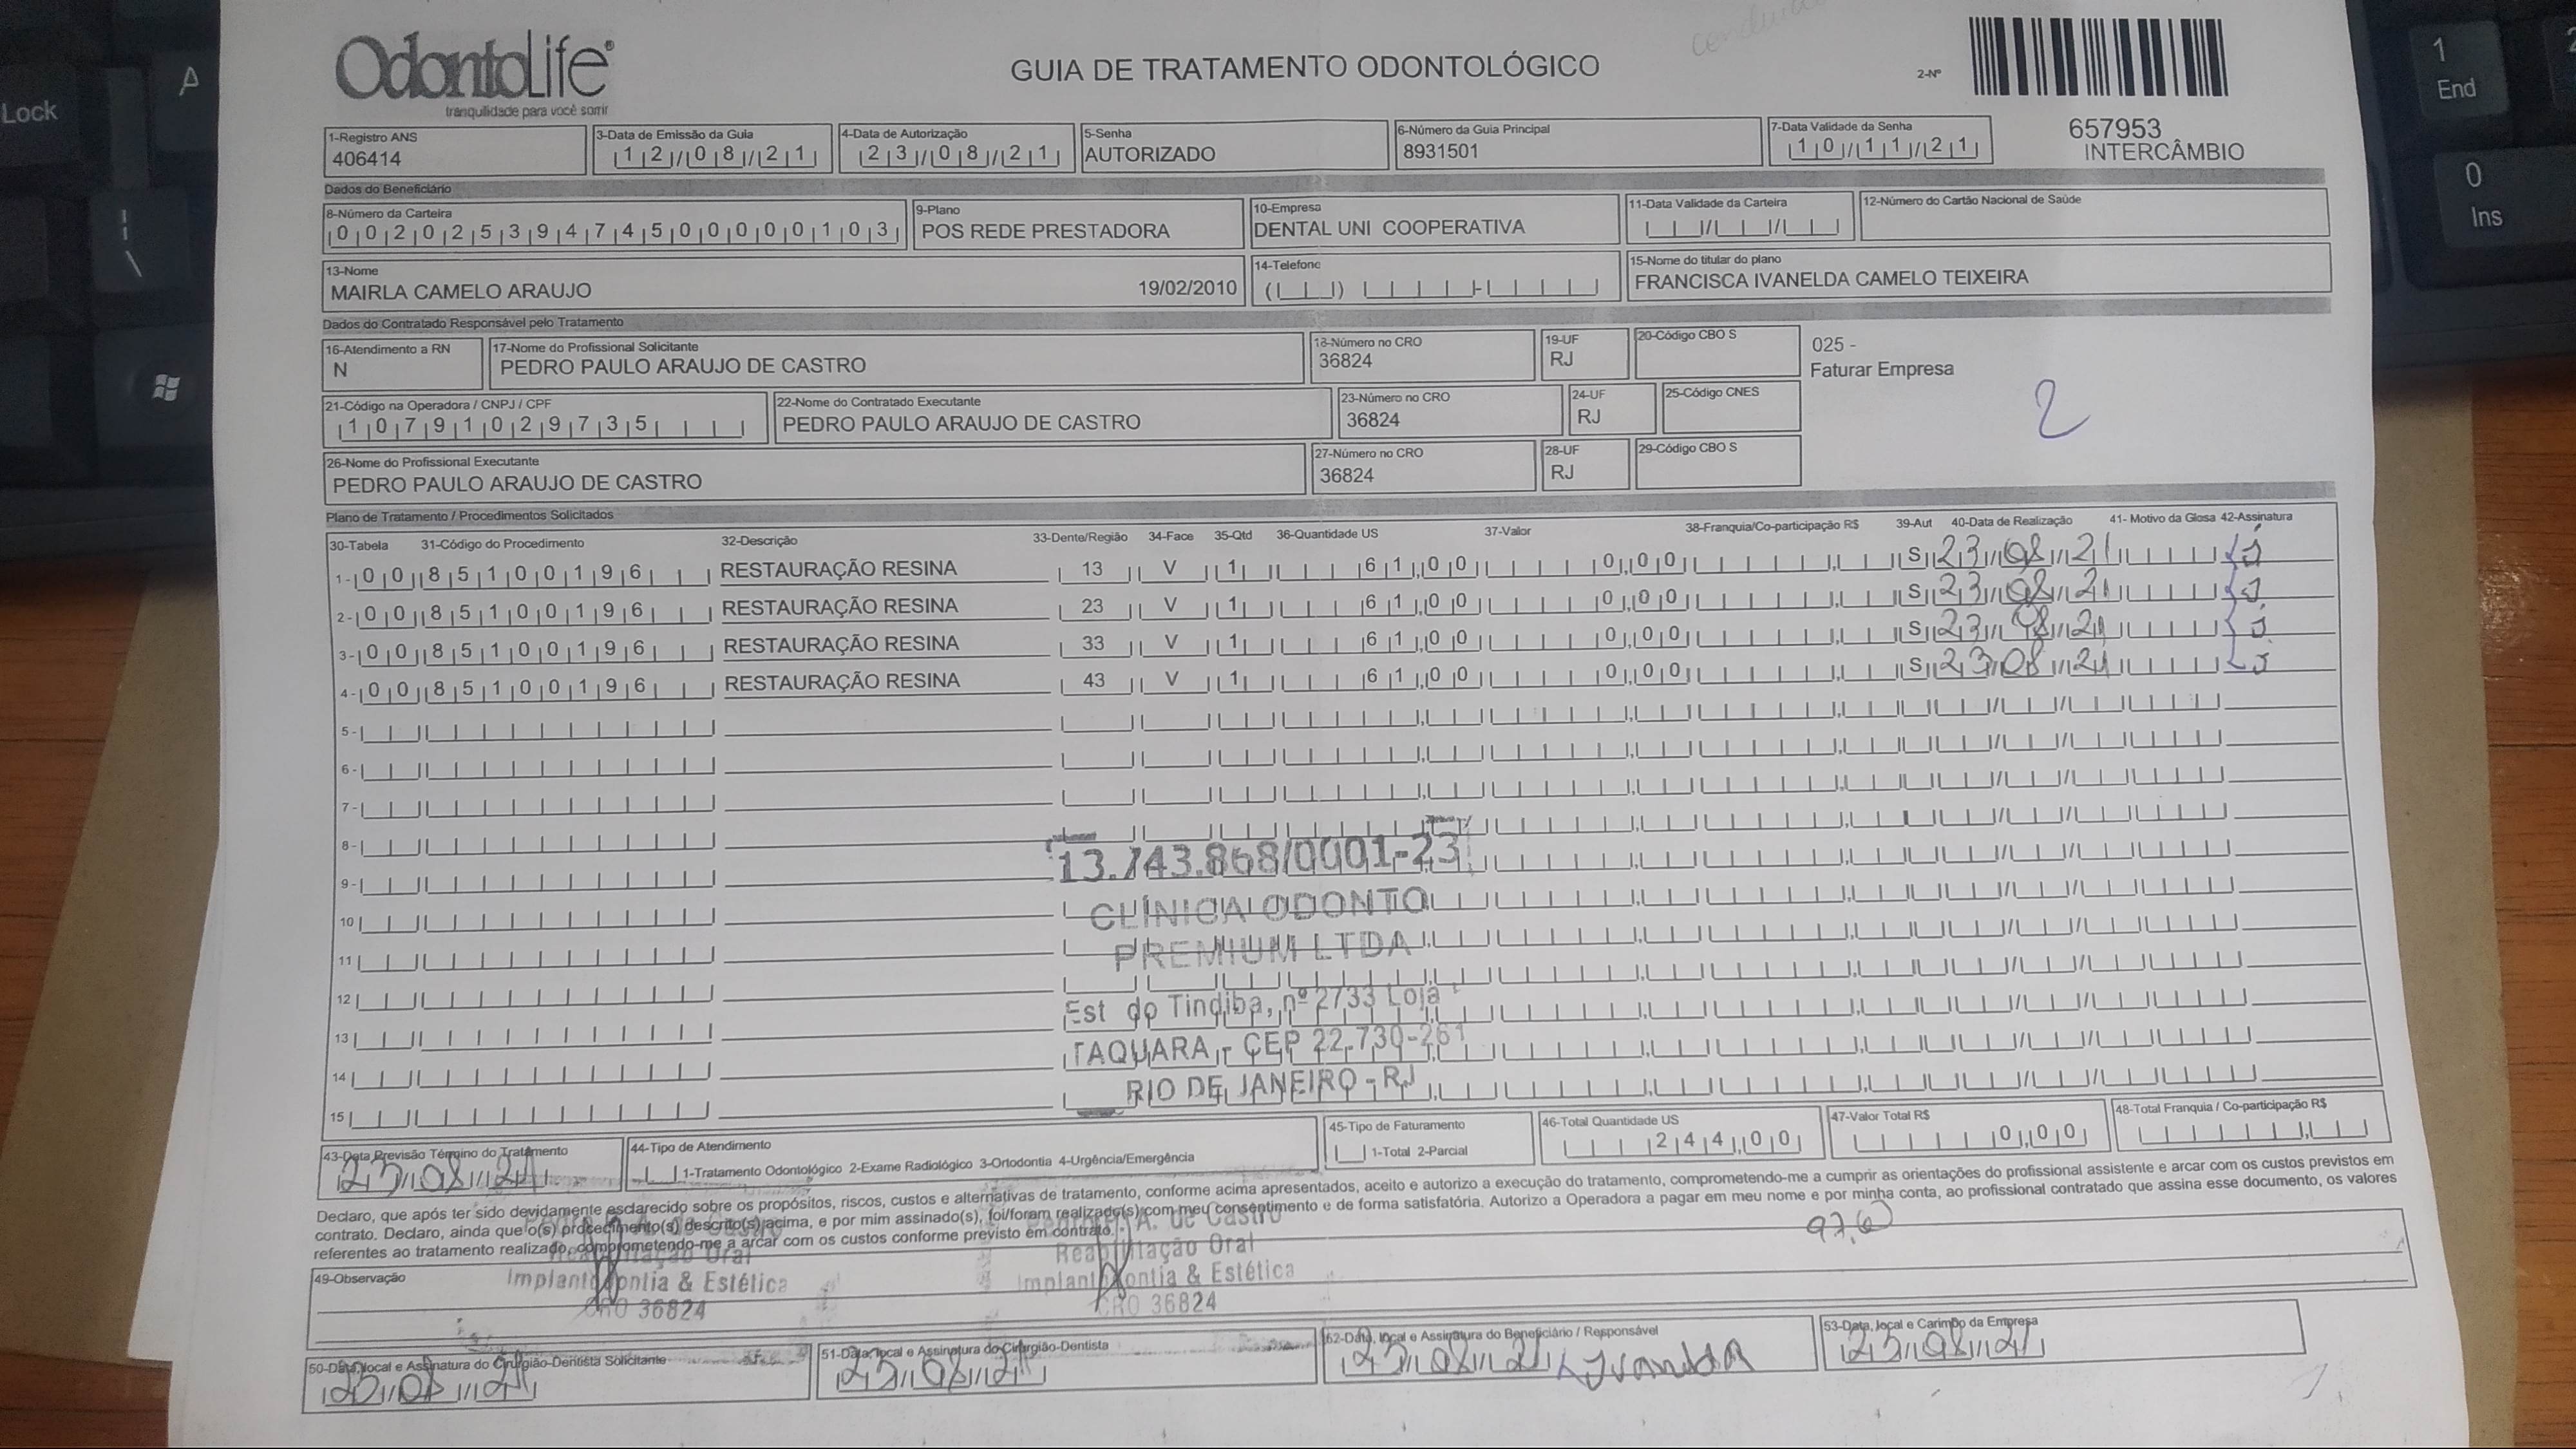 conclui
OdontoLife®
tranquilidade para você sorrir
GUIA DE TRATAMENTO ODONTOLÓGICO
2-Nº
657953
INTERCÂMBIO
1-Registro ANS
406414
3-Data de Emissão da Guia
12/08/21
4-Data de Autorização
23/08/21
5-Senha
AUTORIZADO
6-Número da Guia Principal
8931501
7-Data Validade da Senha
10/11/21
Dados do Beneficiário
8-Número da Carteira
00202539474500000103
9-Plano
POS REDE PRESTADORA
10-Empresa
DENTAL UNI COOPERATIVA
11-Data Validade da Carteira
12-Número do Cartão Nacional de Saúde
13-Nome
MAIRLA CAMELO ARAUJO 19/02/2010
14-Telefone
15-Nome do titular do plano
FRANCISCA IVANELDA CAMELO TEIXEIRA
Dados do Contratado Responsável pelo Tratamento
16-Atendimento a RN
N
17-Nome do Profissional Solicitante
PEDRO PAULO ARAUJO DE CASTRO
18-Número no CRO
36824
19-UF
RJ
20-Código CBO S
025 -
Faturar Empresa
2
21-Código na Operadora / CNPJ / CPF
10791029735
22-Nome do Contratado Executante
PEDRO PAULO ARAUJO DE CASTRO
23-Número no CRO
36824
24-UF
RJ
25-Código CNES
26-Nome do Profissional Executante
PEDRO PAULO ARAUJO DE CASTRO
27-Número no CRO
36824
28-UF
RJ
29-Código CBO S
Plano de Tratamento / Procedimentos Solicitados
30-Tabela 31-Código do Procedimento 32-Descrição 33-Dente/Região 34-Face 35-Qtd 36-Quantidade US 37-Valor 38-Franquia/Co-participação R$ 39-Aut 40-Data de Realização 41- Motivo da Glosa 42-Assinatura
1- 00 85100196 RESTAURAÇÃO RESINA 13 V 1 61,00 0,00 S 23/08/21
2- 00 85100196 RESTAURAÇÃO RESINA 23 V 1 61,00 0,00 S 23/08/21
3- 00 85100196 RESTAURAÇÃO RESINA 33 V 1 61,00 0,00 S 23/08/21
4- 00 85100196 RESTAURAÇÃO RESINA 43 V 1 61,00 0,00 S 23/08/21
5-
6-
7-
8-
9-
10
11
12
13
14
15
13.743.868/0001-23
CLÍNICA ODONTO
PREMIUM LTDA
Est do Tindiba, nº 2733 Loja
TAQUARA - CEP 22.730-261
RIO DE JANEIRO - RJ
43-Data Previsão Término do Tratamento
23/08/21
44-Tipo de Atendimento
1-Tratamento Odontológico 2-Exame Radiológico 3-Ortodontia 4-Urgência/Emergência
45-Tipo de Faturamento
1-Total 2-Parcial
46-Total Quantidade US
244,00
47-Valor Total R$
0,00
48-Total Franquia / Co-participação R$
Declaro, que após ter sido devidamente esclarecido sobre os propósitos, riscos, custos e alternativas de tratamento, conforme acima apresentados, aceito e autorizo a execução do tratamento, comprometendo-me a cumprir as orientações do profissional assistente e arcar com os custos previstos em
contrato. Declaro, ainda que o(s) procedimento(s) descrito(s) acima, e por mim assinado(s), foi/foram realizado(s) com meu consentimento e de forma satisfatória. Autorizo a Operadora a pagar em meu nome e por minha conta, ao profissional contratado que assina esse documento, os valores
referentes ao tratamento realizado, comprometendo-me a arcar com os custos conforme previsto em contrato.
97,6
49-Observação
Reabilitação Oral
Implantodontia & Estética
CRO 36824
A. de Castro
Reabilitação Oral
Implantodontia & Estética
CRO 36824
50-Data, local e Assinatura do Cirurgião-Dentista Solicitante
23/08/21
51-Data, local e Assinatura do Cirurgião-Dentista
23/08/21
52-Data, local e Assinatura do Beneficiário / Responsável
23/08/21
53-Data, local e Carimbo da Empresa
23/08/21
Lock
A
|
\
1
End
0
Ins